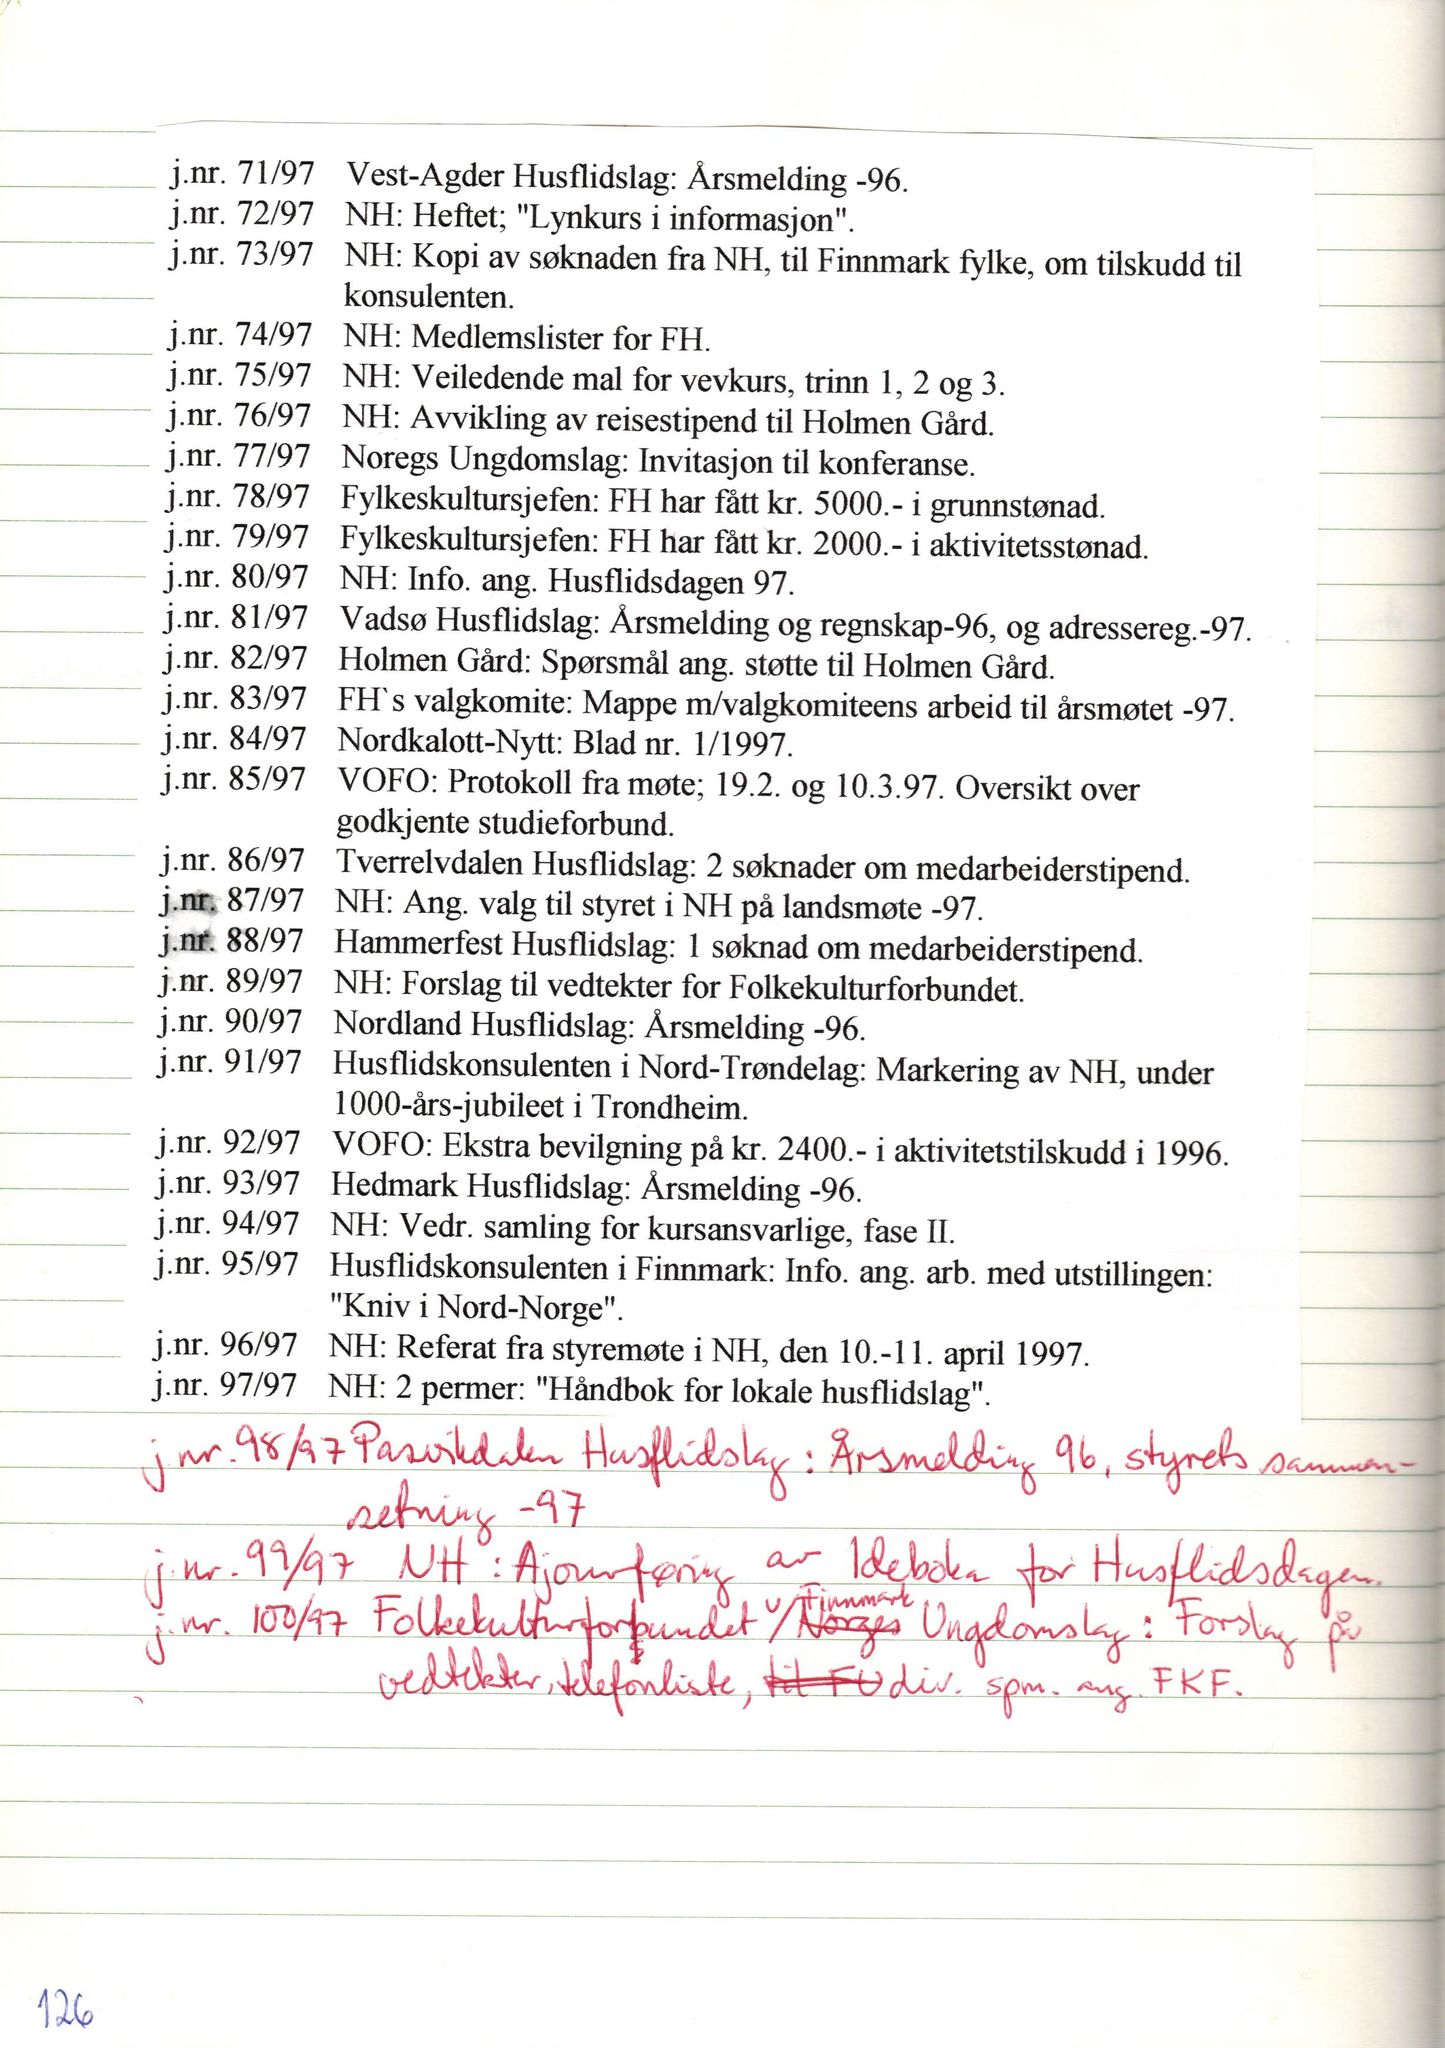 j.nr. 71/97 Vest-Agder Husflidslag: Årsmelding -96.
j.nr. 72/97 NH: Heftet; "Lynkurs i informasjon".
j.nr. 73/97 NH: Kopi av søknaden fra NH, til Finnmark fylke, om tilskudd til
konsulenten.
j.nr. 74/97 NH: Medlemslister for FH.
j.nr. 75/97 NH: Veiledende mal for vevkurs, trinn 1, 2 og 3.
j.nr. 76/97 NH: Avvikling av reisestipend til Holmen Gård.
j.nr. 77/97 Noregs Ungdomslag: Invitasjon til konferanse.
j.nr. 78/97 Fylkeskultursjefen: FH har fått kr. 5000.- i grunnstønad.
j.nr. 79/97 Fylkeskultursjefen: FH har fått kr. 2000.- i aktivitetsstønad.
j.nr. 80/97 NH: Info. ang. Husflidsdagen 97.
j.nr. 81/97 Vadsø Husflidslag: Årsmelding og regnskap-96, og adressereg.-97.
j.nr. 82/97 Holmen Gård: Spørsmål ang. støtte til Holmen Gård.
j.nr. 83/97 FH`s valgkomite: Mappe m/valgkomiteens arbeid til årsmøtet -97.
j.nr. 84/97 Nordkalott-Nytt: Blad nr. 1/1997.
j.nr. 85/97 VOFO: Protokoll fra møte; 19.2. og 10.3.97. Oversikt over
godkjente studieforbund.
j.nr. 86/97 Tverrelvdalen Husflidslag: 2 søknader om medarbeiderstipend.
j.nr. 87/97 NH: Ang. valg til styret i NH på landsmøte -97.
j.nr. 88/97 Hammerfest Husflidslag: 1 søknad om medarbeiderstipend.
j.nr. 89/97 NH: Forslag til vedtekter for Folkekulturforbundet.
j.nr. 90/97 Nordland Husflidslag: Årsmelding -96.
j.nr. 91/97 Husflidskonsulenten i Nord-Trøndelag: Markering av NH, under
1000-års-jubileet i Trondheim.
j.nr. 92/97 VOFO: Ekstra bevilgning på kr. 2400.- i aktivitetstilskudd i 1996.
j.nr. 93/97 Hedmark Husflidslag: Årsmelding -96.
j.nr. 94/97 NH: Vedr. samling for kursansvarlige, fase II.
j.nr. 95/97 Husflidskonsulenten i Finnmark: Info. ang. arb. med utstillingen:
"Kniv i Nord-Norge".
j.nr. 96/97 NH: Referat fra styremøte i NH, den 10.-11. april 1997.
j.nr. 97/97 NH: 2 permer: "Håndbok for lokale husflidslag".
j.nr. 98/97 Pasvikdalen Husflidslag: Årsmelding 96, styrets sammen-
setning -97
j.nr. 99/97 NH: Ajourføring av Ideboka for Husflidsdagen.
j.nr. 100/97 Folkekulturforbundet v/ Finnmark Norges Ungdomslag: Forslag på
vedtekter, telefonliste, til FU div. spm. ang. FKF.
126